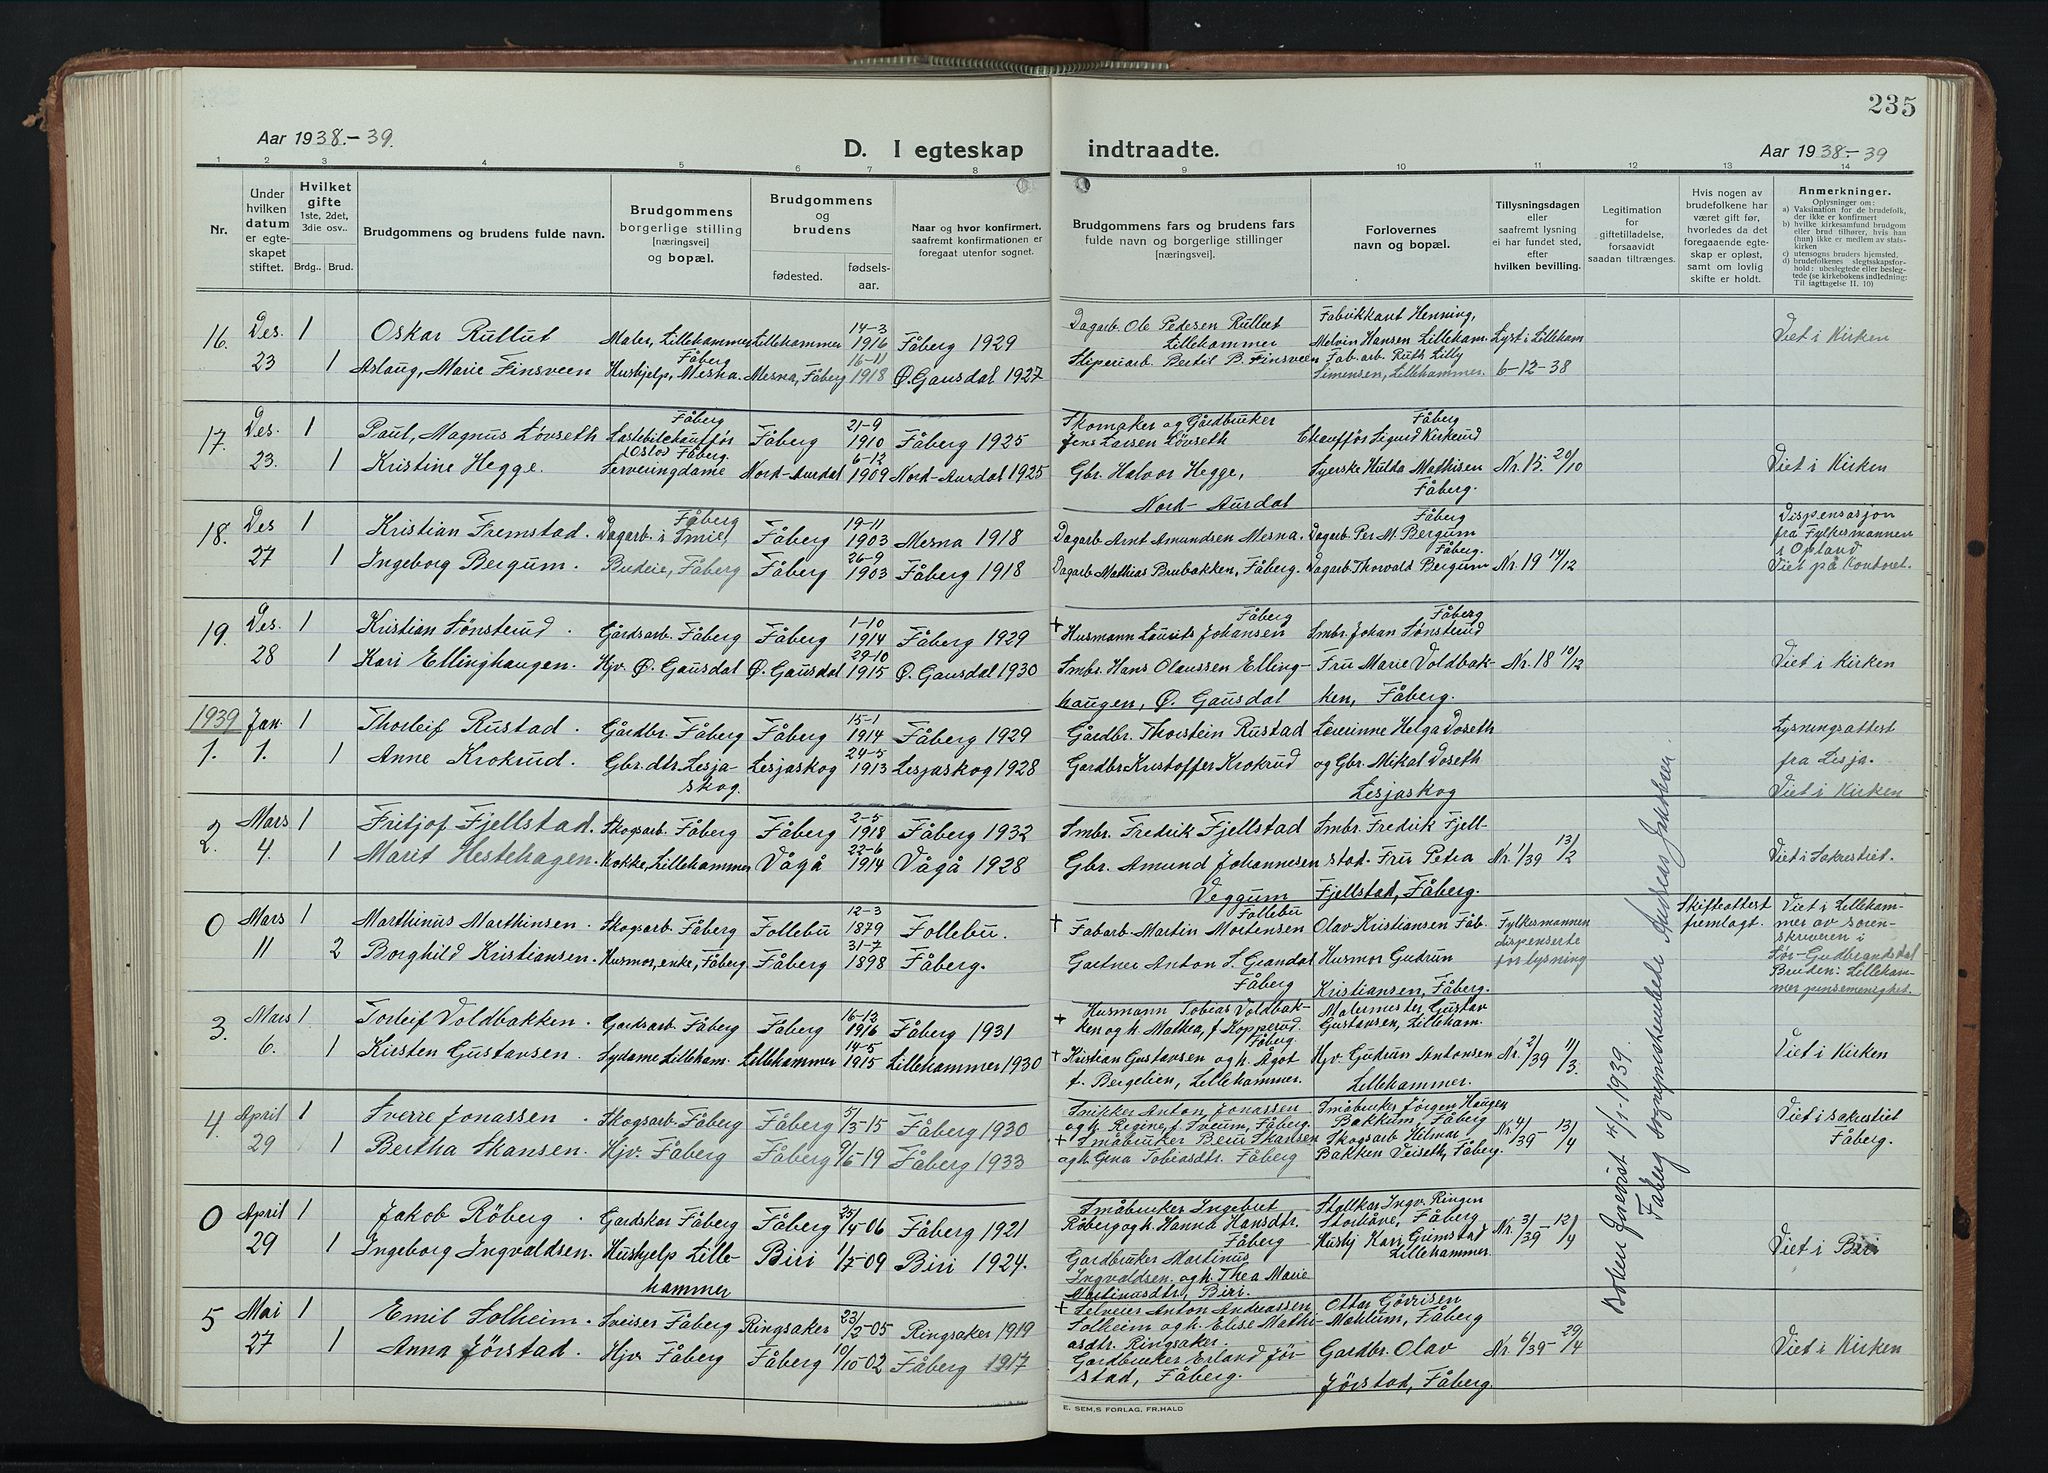 235
Aar 1938.-39.
D. I egteskap
indtraadte.
Aar 1938-39
1 2 3 4 5 6 7 8 9 10 11 12 13 14
Nr.
Under hvilken datum er egteskapet stiftet.
Hvilket gifte
1ste, 2det, 3die osv..
Brdg.. Brud.
Brudgommens og brudens fulde navn.
Brudgommens borgerlige stilling [næringsvei] og bopæl.
Brudgommens og brudens
fødested.
fødselsaar.
Naar og hvor konfirmert, saafremt konfirmationen er foregaat utenfor sognet.
Brudgommens fars og brudens fars fulde navn og borgerlige stillinger [næringsvei].
Forlovernes navn og bopæl.
Tillysningsdagen eller saafremt lysning ei har fundet sted, efter hvilken bevilling.
Legitimation for giftetilladelse, forsaavidt saadan tiltrænges.
Hvis nogen av brudefolkene har været gift før, hvorledes da det foregaaende egteskap er opløst, samt om lovlig skifte er holdt.
Anmerkninger.
Oplysninger om:
a) Vaksination for de brudefolk, der ikke er konfirmert
b) hvilke kirkesamfund brudgom eller brud tilhører, hvis han (hun) ikke er medlem av statskirken
c) utensogns bruders hjemsted.
d) brudefolkenes slegtsskapsforhold: ubeslegtede eller beslegtede (se kirkebokens indledning: Til iagttagelse II. 10)
16. Des. 1 Oskar Rullut Maler, Lillehammer Lillehammer 14-3 1916 Fåberg 1929 Dagarb. Ole Pedersen Rullut Lillehammer Fabrikkant Henning, Melvin Hansen Lilleham. Lyst i Lilleham Viet i Kirken
23 1 Aslaug, Marie Finsveen Fåberg Hushjelp, Mesna. Mesna, Fåberg 16-11 1918 Ø. Gausdal 1927 Bertil B. Finsveen Fab. arb. Ruth Lilly Simensen, Lillehammer. 6-12-38
17. Des. 1 Paul, Magnus Lövseth Fåberg Lastebilchauffør Fåberg 21-9 1910 Fåberg 1925 Skomaker og Gårdbruker Jens Larsen Lövseth Fåberg Chauffør Sigurd Kirkerud
23. 1 Kristine Hegge. Oslos Fåberg. Serveringdame Nord-Aurdal 6-12 1909 Nord-Aurdal 1925 Gbr. Halvor Hegge, Nord-Aurdal Syerske Hulda Mathisen Fåberg. Nr. 15. 20/10 Viet i Kirken
18. Des 1 Kristian Fremstad. Fåberg Dagarb. i Fåberg 19-11 1903 Mesna 1918 Dagarb Arnt Amundsen Mesna. Fåberg Dagarb. Per M. Bergum Dispensasjon fra Fylkesmannen i Opland
27 1 Ingeborg Bergum. Budeie, Fåberg Fåberg 26-9 1903 Fåberg 1918 Dagarb Mathias Brubakken, Fåberg. Fåberg. Dagarb Thorvald Bergum Nr. 19 14/12 Viet på Kontoret.
19. Des. 1 Kristian Sønsterud. Gårdsarb. Fåberg Fåberg 1-10 1914 Fåberg 1929 + Husmann Lauits Johansen Fåberg Smbr. Johan Sønsterud Fåberg
28 1 Kari Ellinghaugen. Hjv. Ø. Gausdal Ø. Gausdal 29-10 1915 Ø. Gausdal 1930 Smbr. Hans Olaussen Ellinghaugen, Ø. Gausdal Fru Marie Voldbakken, Fåberg. Nr. 18 10/12 Viet i Kirken
1939
1. Jan. 1 Thorleif Rustad. Gårdbr. Fåberg Fåberg 15-1 1914 Fåberg 1929 Gårdbr. Thorstein Rustad Lærerinne Helga Doseth Lysningsattest fra Lesja.
1. 1 Anne Krokrud. Gbr. dtr. Lesjaskog. Lesjaskog 24-5 1913 Lesjaskog 1928 Gardbr Kristoffer Krokrud og Gbr. Mikal Doseth Lesjaskog Viet i Kirken
2. Mars 1 Fritjof Fjellstad. Skogsarb. Fåberg Fåberg 2-5 1918 Fåberg 1932 Smbr. Fredrik Fjellstad Smbr. Fredrik Fjell-
4. 1 Marit Hestehagen. Kokke, Lillehammer Vågå 22-6 1914 Vågå 1928 Gbr. Amund Johannesen Veggum stad. Fru Petra Fjellstad, Fåberg. Nr. 1/39 13/2 Viet i Sakrestiet.
0 Mars 1 Marthinus Marthinsen. Skogsarb. Fåberg Follebu 12-3 1879 Follebu. + Fabarb. Martin Mortensen Follebu Olav Kristiansen Fåb. Fylkesmannen dispenserte for lysning Skifteattest fremlagt. Viet i Lillehammer av sorenskriveren i Sør-Gudbrandsdal
11 2 Borghild Kristiansen. Husmor, enke, Fåberg Fåberg 31-7 1898 Fåberg. Gartner Anton S. Grandal Fåberg Husmor Gudrun Kristiansen, Fåberg. Bruden: Lillehammer pinsemenighet.
3. Mars 1 Torleif Voldbakken. Gardsarb. Fåberg Fåberg 16-12 1916 Fåberg 1931 + Husmann Tobias Voldbakken og h. Mathea, f. Kopperud. Fåberg. Malermester Gustav Gustavsen, Lilleham.
6. 1 Kirsten Gustavsen. Sydame Lilleham. Lillehammer 14-5 1915 Lillehammer 1930 + Kristian Gustavsen og h. Ågot f. Bergelien, Lillehammer. Hjv. Gudrun Antonsen Lillehammer. Nr. 2/39 11/3. Viet i Kirken
4. April 1 Sverre Jonassen. Skogsarb. Fåberg Fåberg 5/3-15 Fåberg 1930 Snikker Anton Jonassen og h. Regine, f. Sveum, Fåberg. Småbruker Jörgen Haugen Bakkum, Fåberg Viet i sakrestiet Fåberg.
29 1 Bertha Skansen. Hjv. Fåberg Fåberg 9/6-19 Fåberg 1933 + Småbruker Skansen og h. Gina Tobiasdtr. Fåberg Skogsarb Hilmar Bakken Fåberg. Nr. 4/39- 13/4
0 April 1 Jakob Röberg. Gardskar Fåberg Fåberg 25/4-06 Fåberg 1921 Småbruker Ingebret Röberg og h. Hanna Hansdtr. Fåberg Stallkar Ingv. Ringen Storhåve, Fåberg
29 1 Ingeborg Ingvaldsen. Hushjelp Lillehammer Biri 1/7-09 Biri 1924. Gardbruker Martinus Ingvaldsen. og h. Thea Marie Martinusdtr, Biri. Hushj Kari Grimstad Lillehammer. Nr. 3/39- 12/4 Viet i Biri
5 Mai 1 Emil Solheim. Sveiser Fåberg Ringsaker 23/2-05 Ringsaker 1919 + Selveier Anton Andreassen Solheim og h. Elise Mathiasdtr. Ringsaker. Ottar Gövrisen Moklum, Fåberg
27 1 Anna Jörstad. Hjv. Fåberg Fåberg 10/10-02 Fåberg 1917 Gardbruker Erland Jörstad, Fåberg. Gardbr. Olav Jörstad, Fåberg. Nr. 6/39- 29/4 Viet i Kirken
Boken 4/1 1939.
Fåberg Andreas
E. SEM,S FORLAG, FR.HALD